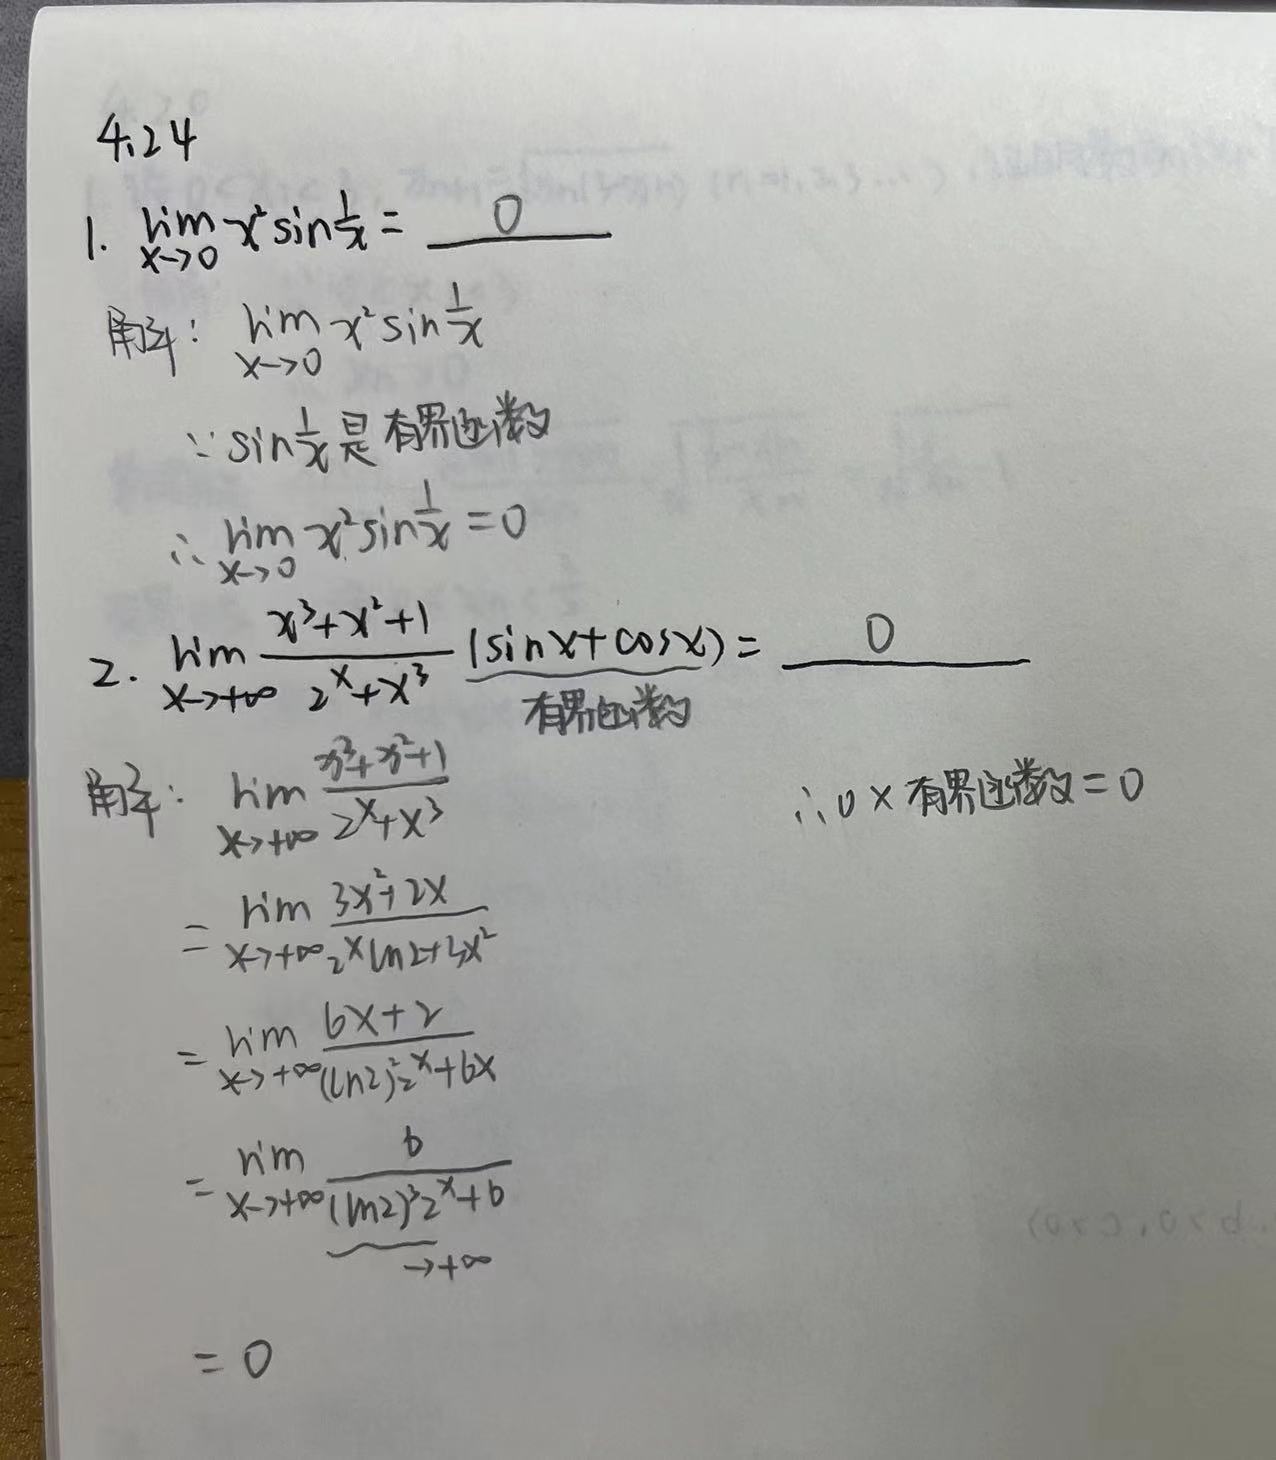 4.24
1. lim x→0 x² sin 1/x = 0
解: lim x→0 x² sin 1/x
∵ sin 1/x 是有界函数
∴ lim x→0 x² sin 1/x = 0
2. lim x→+∞ (x³+x²+1)/(2^x+x³) (sinx+cosx) = 0
有界函数
解: lim x→+∞ (x³+x²+1)/(2^x+x³)
∴ 0 × 有界函数 = 0
= lim x→+∞ (3x²+2x)/(2^x ln2+3x²)
= lim x→+∞ (6x+2)/((ln2)² 2^x+6x)
= lim x→+∞ 6/((ln2)³ 2^x+6)
→+∞
= 0